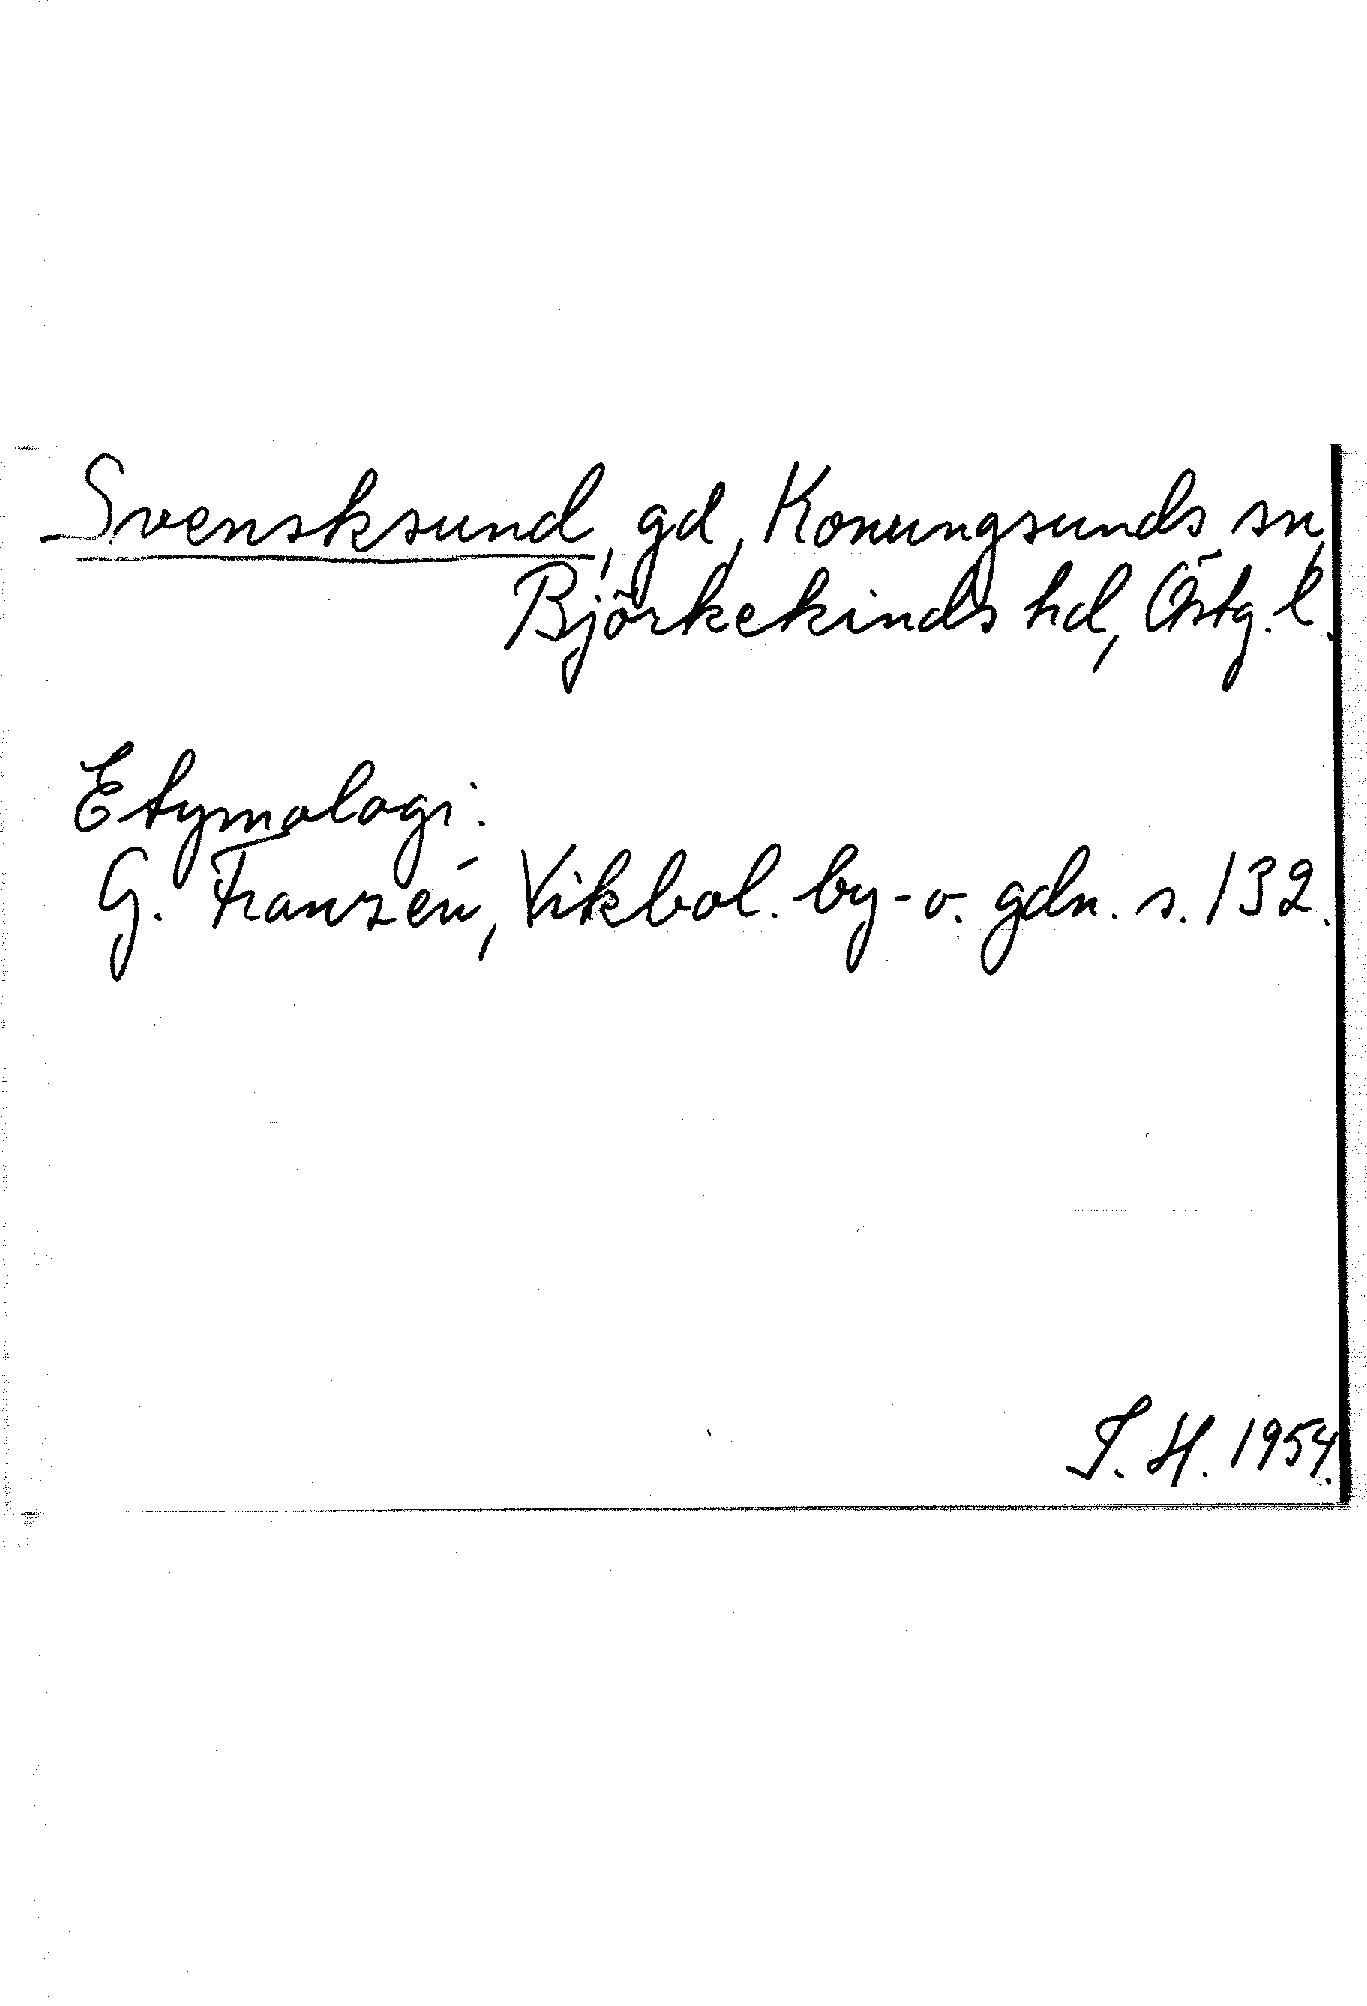 Svensksund, gd, Konungsunds sn,
Björkekinds hd, Östg. l.
Etymologi:
G. Franzén, Vikbol. by- o. gdn. s. 132.
T. H. 1954.